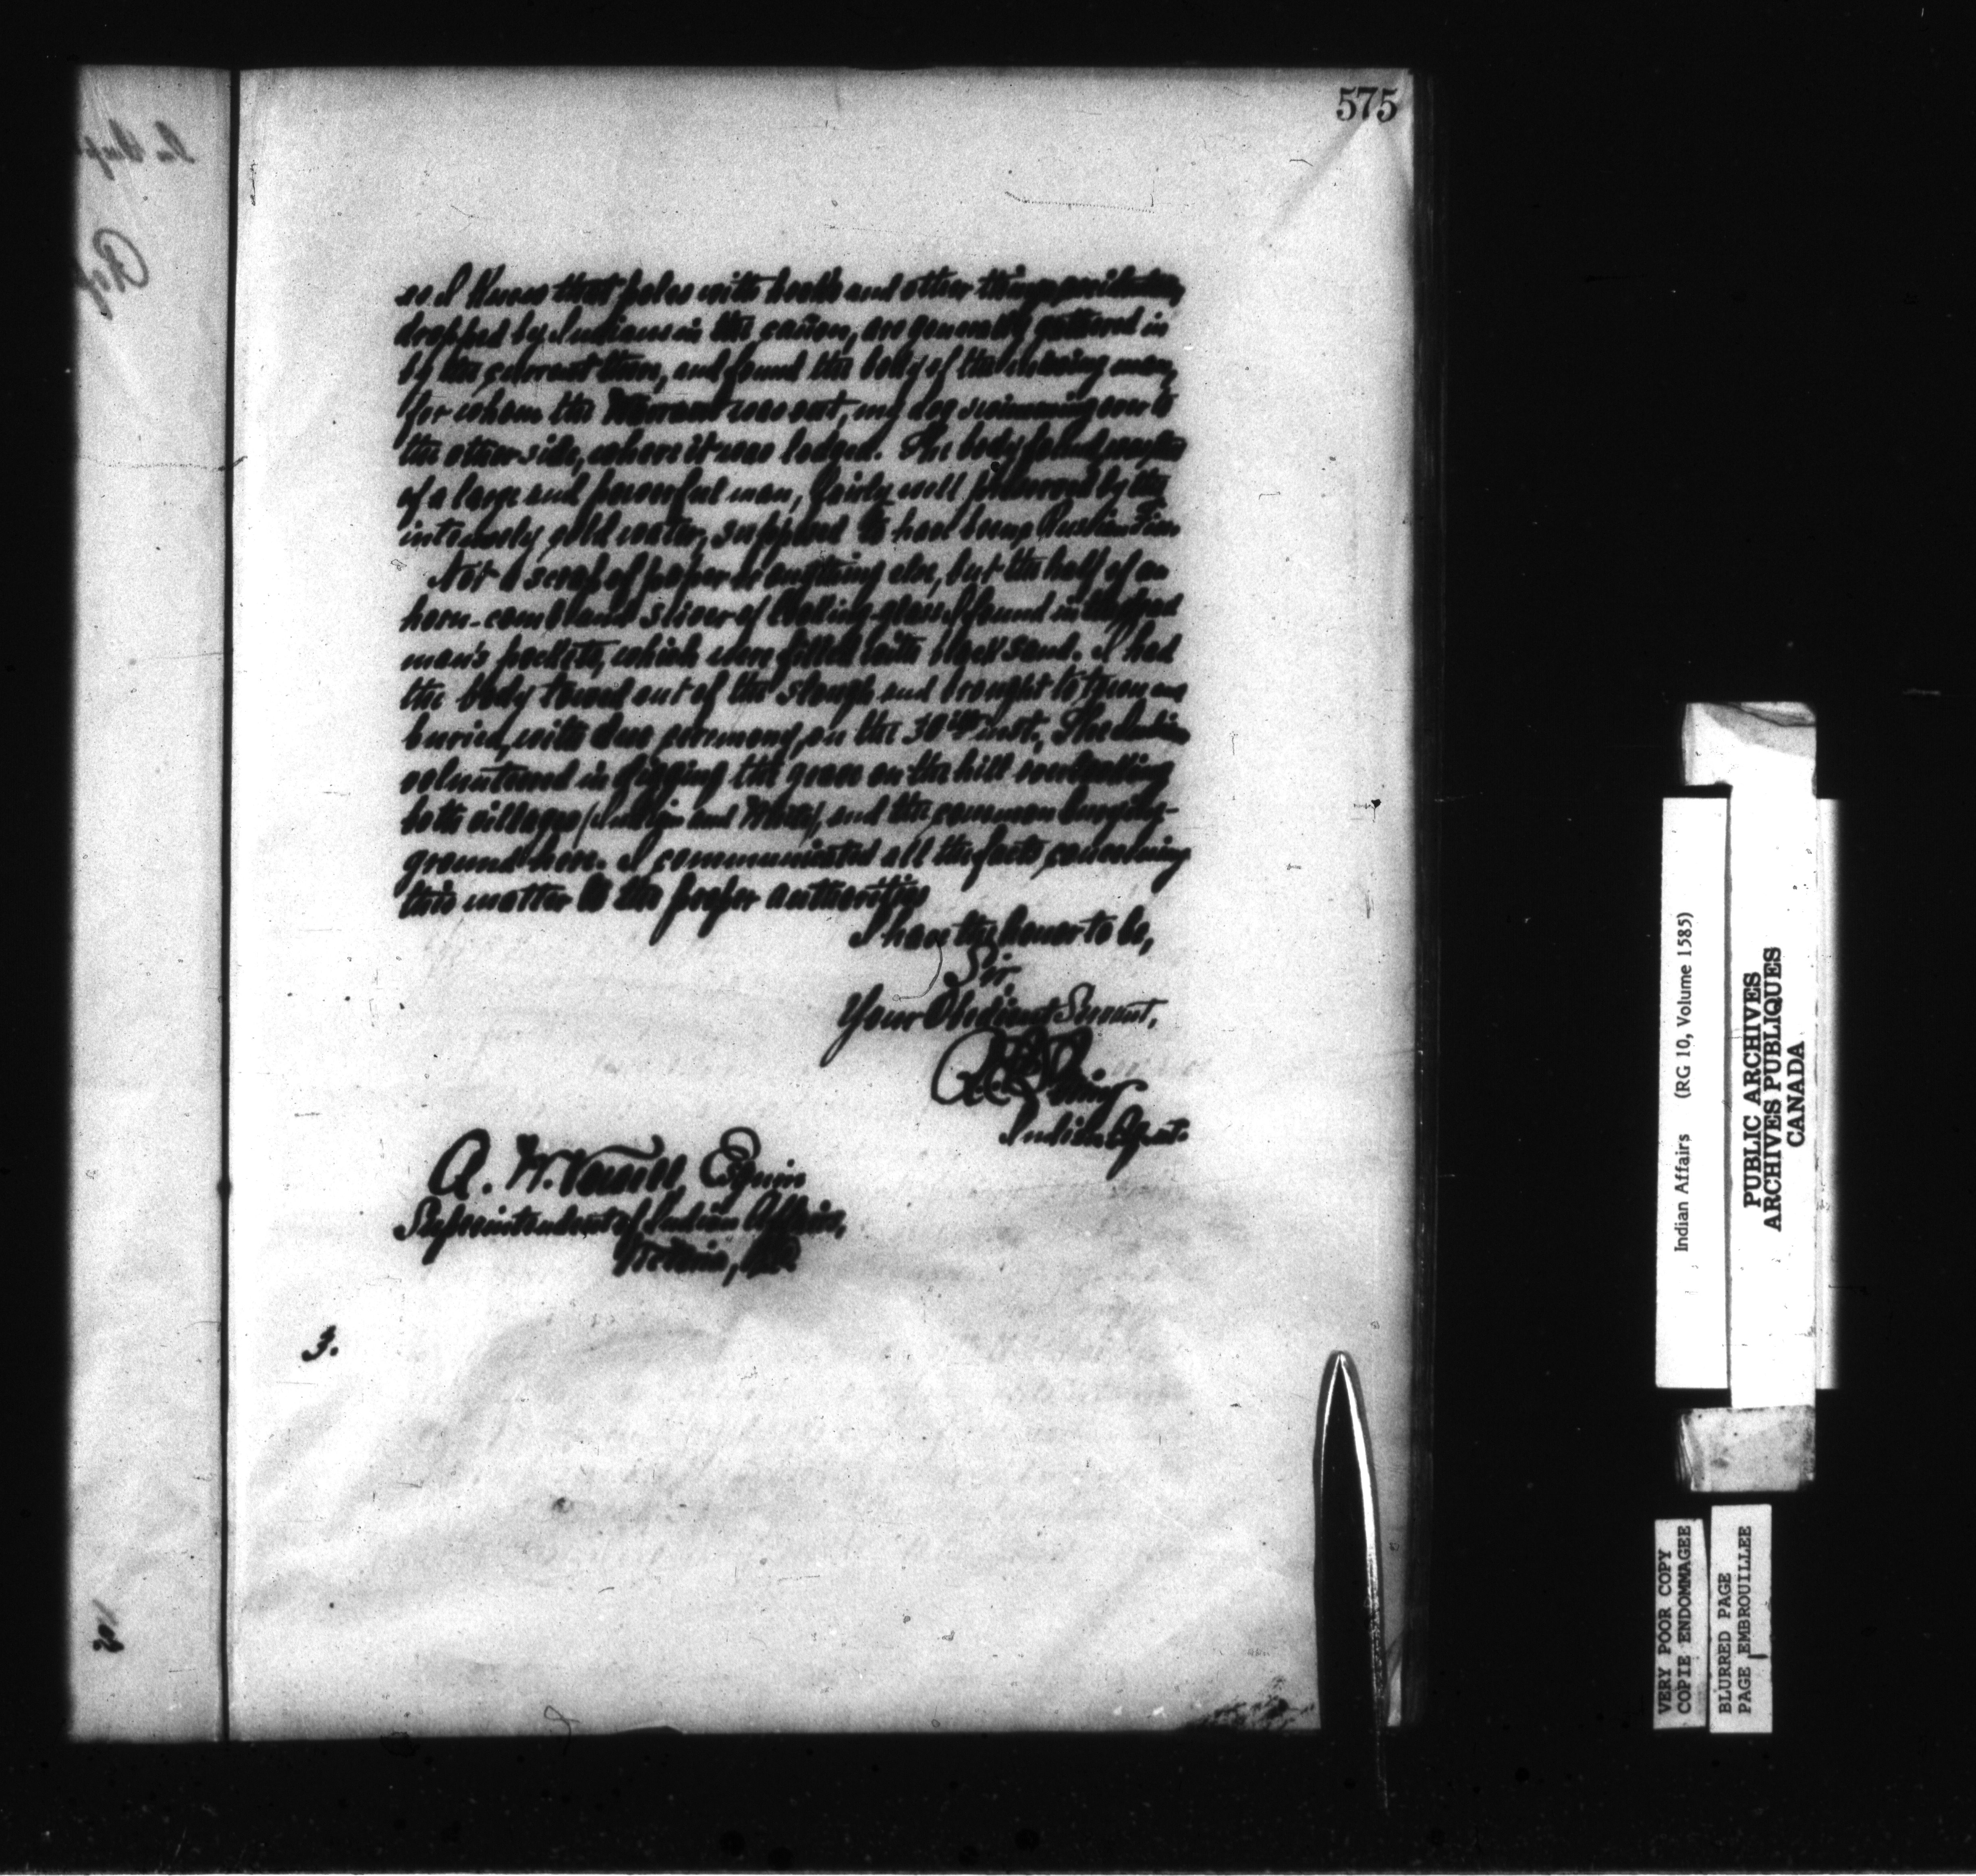 575
as I know that poles with hooks and other things accidentally
dropped by Indians in the cañon, are generally gathered in
by the current there, and found the body of the missing man,
for whom the Warrant was out, my dog swimming over to
the other side, where it was lodged. The body found was
of a large and powerful man, fairly well preserved by the
intensely cold water, supposed to have being
Not a scrap of paper or anything else, but the half of an
horn-comb and sliver of looking-glass I found in the dead
man's pockets, which were filled with black sand. I had
the body towed out of the slough and brought to town and
buried, with due ceremony, on the 30th inst. The Indians
volunteered in digging the grave on the hill overlooking
both villages (Indian and White), and the common burying-
ground here. I communicated all the facts concerning
this matter to the proper authorities
I have the honor to be,
Sir,
Your Obedient Servant,
Indian Agent.
A. W. Vowell, Esquire
Superintendent of Indian Affairs,
Victoria, B.C.
3.
Indian Affairs (RG 10, Volume 1585)
PUBLIC ARCHIVES
ARCHIVES PUBLIQUES
CANADA
VERY POOR COPY
COPIE ENDOMMAGEE
BLURRED PAGE
PAGE EMBROUILLEE